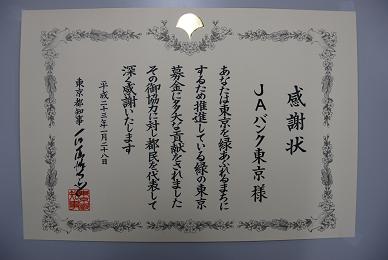 感謝状
JAバンク東京様
あなたは東京を緑あふれるまちに
するため推進している緑の東京
募金に多大な貢献をされました
その御協力に対し都民を代表して
深く感謝いたします
平成二十三年一月二十八日
東京都知事